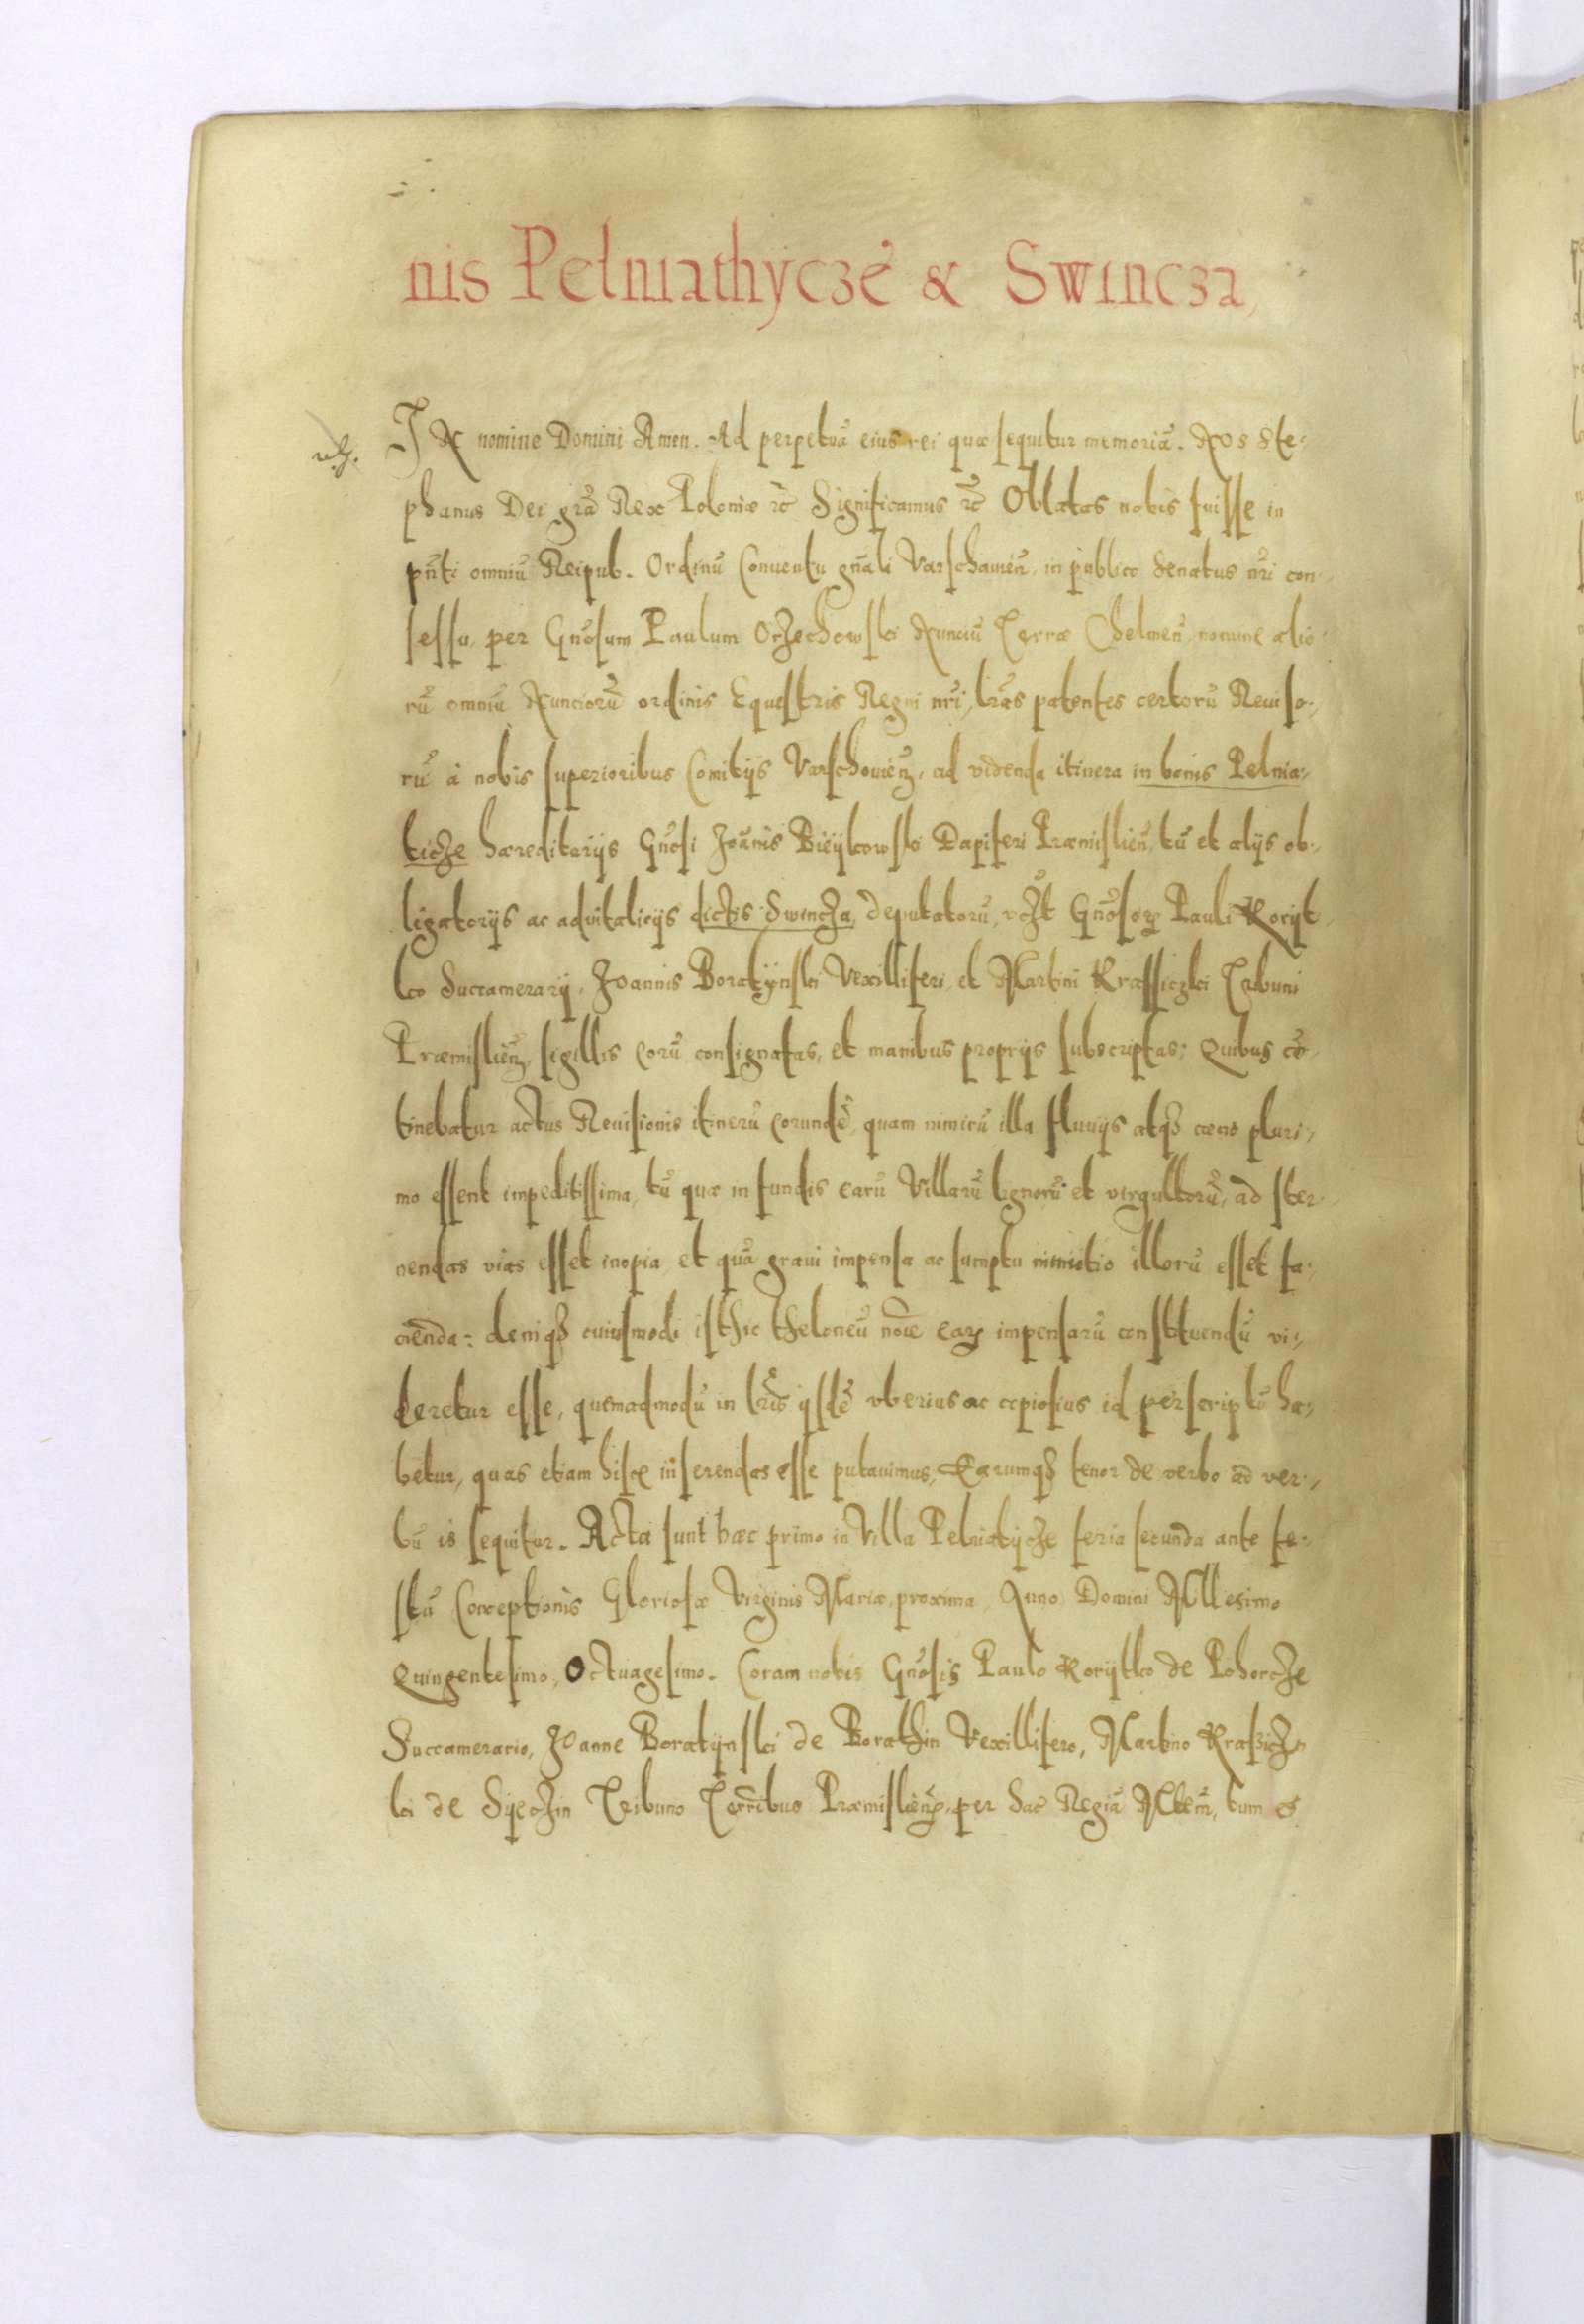 nis Pelniathÿczė & Swincza,
IN nomine Domini Amen. Ad perpetuã eius rei quæ sequitur memoriã. Nos Ste-
phanus Dei grã Rex Poloniæ etc̃ Significamus etc̃ Oblatas nobis fuisse in
pñti omniũ Reipub. Ordinũ Conuentu gñali Varschauieñ, in publico Senatus ñri con-
sessu, per Gñosum Paulum Orzechowski Nunciũ Terræ Chelmeñ, nomine alio-
rũ omniũ Nunciorũ ordinis Equestris Regni ñri, lr̃as patentes certorũ Reuiso-
rũ à nobis superioribus Comitijs Varschouieñ, ad videnda itinera in bonis Pelnia-
ticze hæreditarijs Gñosi Joãnis Bieÿkowski Dapiferi Præmislieñ, tũ et alijs ob-
ligatorijs ac aduitalicijs dictis Swincza, deputatorũ, vczt Gñosorꝝ Pauli Korijt-
ko Succamerarij, Joannis Boratÿnski Vexilliferi, et Martini Krassiczki Tribuni
Præmislieñ, sigillis eorũ consignatas, et manibus proprijs subscriptas; Quibus cõ-
tinebatur actus Reuisionis itinerũ eorundẽ, quam nimirũ illa fluuijs atqꝫ cæno pluri-
mo essent impeditissima, tũ quæ in fundis earũ Villarũ lignorũ et virgultorũ, ad ster-
nendas vias esset inopia et quã graui impensa ac sumptu munitio illorũ esset fa-
cienda: deniqꝫ cuiusmodi isthic theloneũ nõie earꝝ impensarũ constituendũ vi-
deretur esse, quemadmodũ in lr̃is ijsdẽ vberius ac copiosius id perscriptũ ha-
betur, quas etiam hisce inserendas esse putauimus, Earumqꝫ tenor de verbo ad ver-
bũ is sequitur. Acta sunt hæc primo in Villa Pelniatijcze feria secunda ante fe-
stũ Conceptionis Gloriosæ Virginis Mariæ, proxima, Anno Domini Millesimo
Quingentesimo, Octuagesimo. Coram nobis Gñosis Paulo Korijtko de Pohorcze
Succamerario, Joanne Boratijnski de Borathin Vexillifero, Martino Krasicz-
ki de Sijeczin Tribuno Terr̃ibus Præmislieñ, per Sac̃ Regiã Mtem̃, tum &